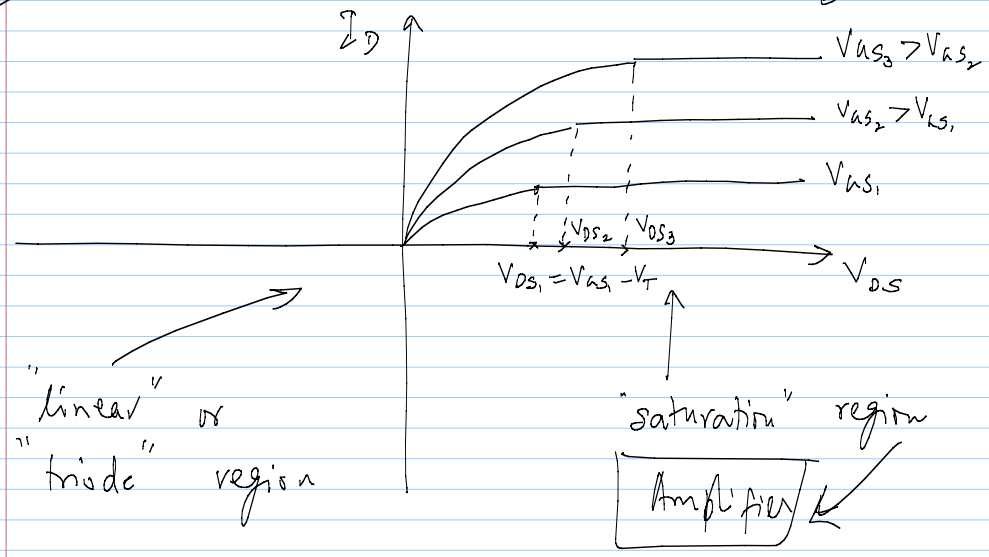 I_D
V_GS3 > V_GS2
V_GS2 > V_GS1
V_GS1
V_DS2
V_DS3
V_DS1 = V_GS1 - V_T
V_DS
"linear" or
"triode" region
"saturation" region
Amplifier